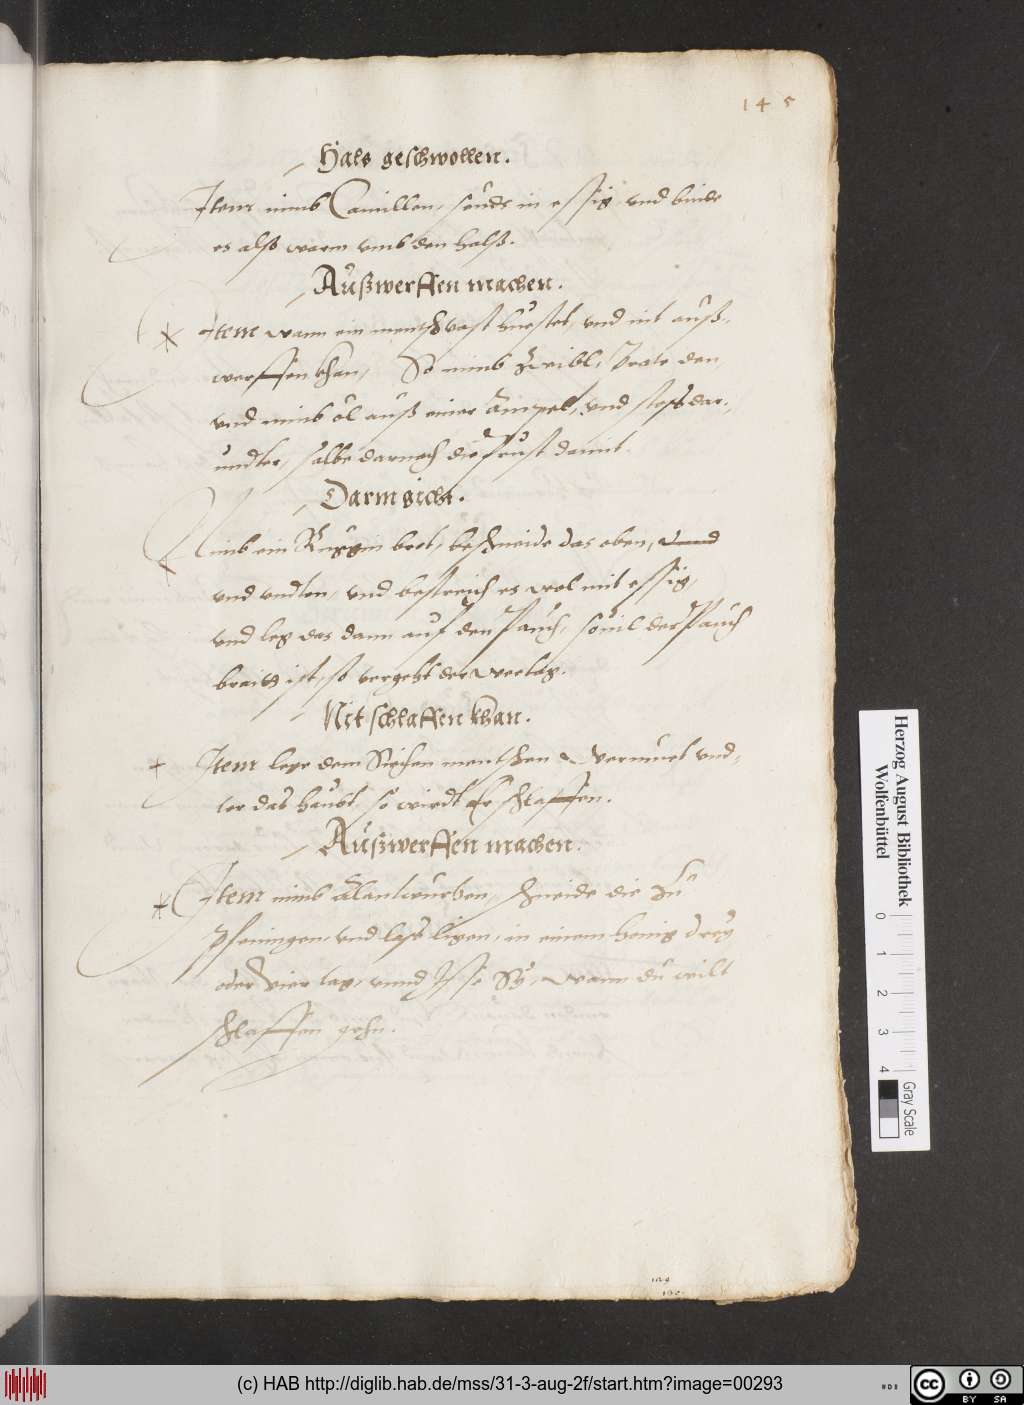 145
Hals geschwollen.
Item nimb Camillen, seuds in essig, und binde
es also warm umb den halß.
Außwerffen machen.
Item wann ein mensch vast huestet, und nit auß-
werffen khan, So nimb Zwibl, brate den,
und nimb öl auß einer Ampel, und stoß dar-
undter, salbe darnach die brust damit.
Darmgicht.
Nimb ein Ruggin brot, beschneide das oben, und
und undten, und bestreich es wol mit essig,
und leg das dann auf den Pauch, sovil der Pauch
brait ist, so vergeht der weetag.
Nit schlaffen khan.
Item lege dem Siechen menschen Wermuet und-
ter das haubt, so wirdt Er schlaffen.
Außwerffen machen.
Item nimb Alantwurtzen, schneide die Zu
pfeningen, und laß ligen, in einem honig drey
oder vier tag, unnd Isse Sy, wann du wilt
schlaffen gehn.
Herzog August Bibliothek
Wolfenbüttel
0 1 2 3 4
Gray Scale
(c) HAB http://diglib.hab.de/mss/31-3-aug-2f/start.htm?image=00293
cc BY SA